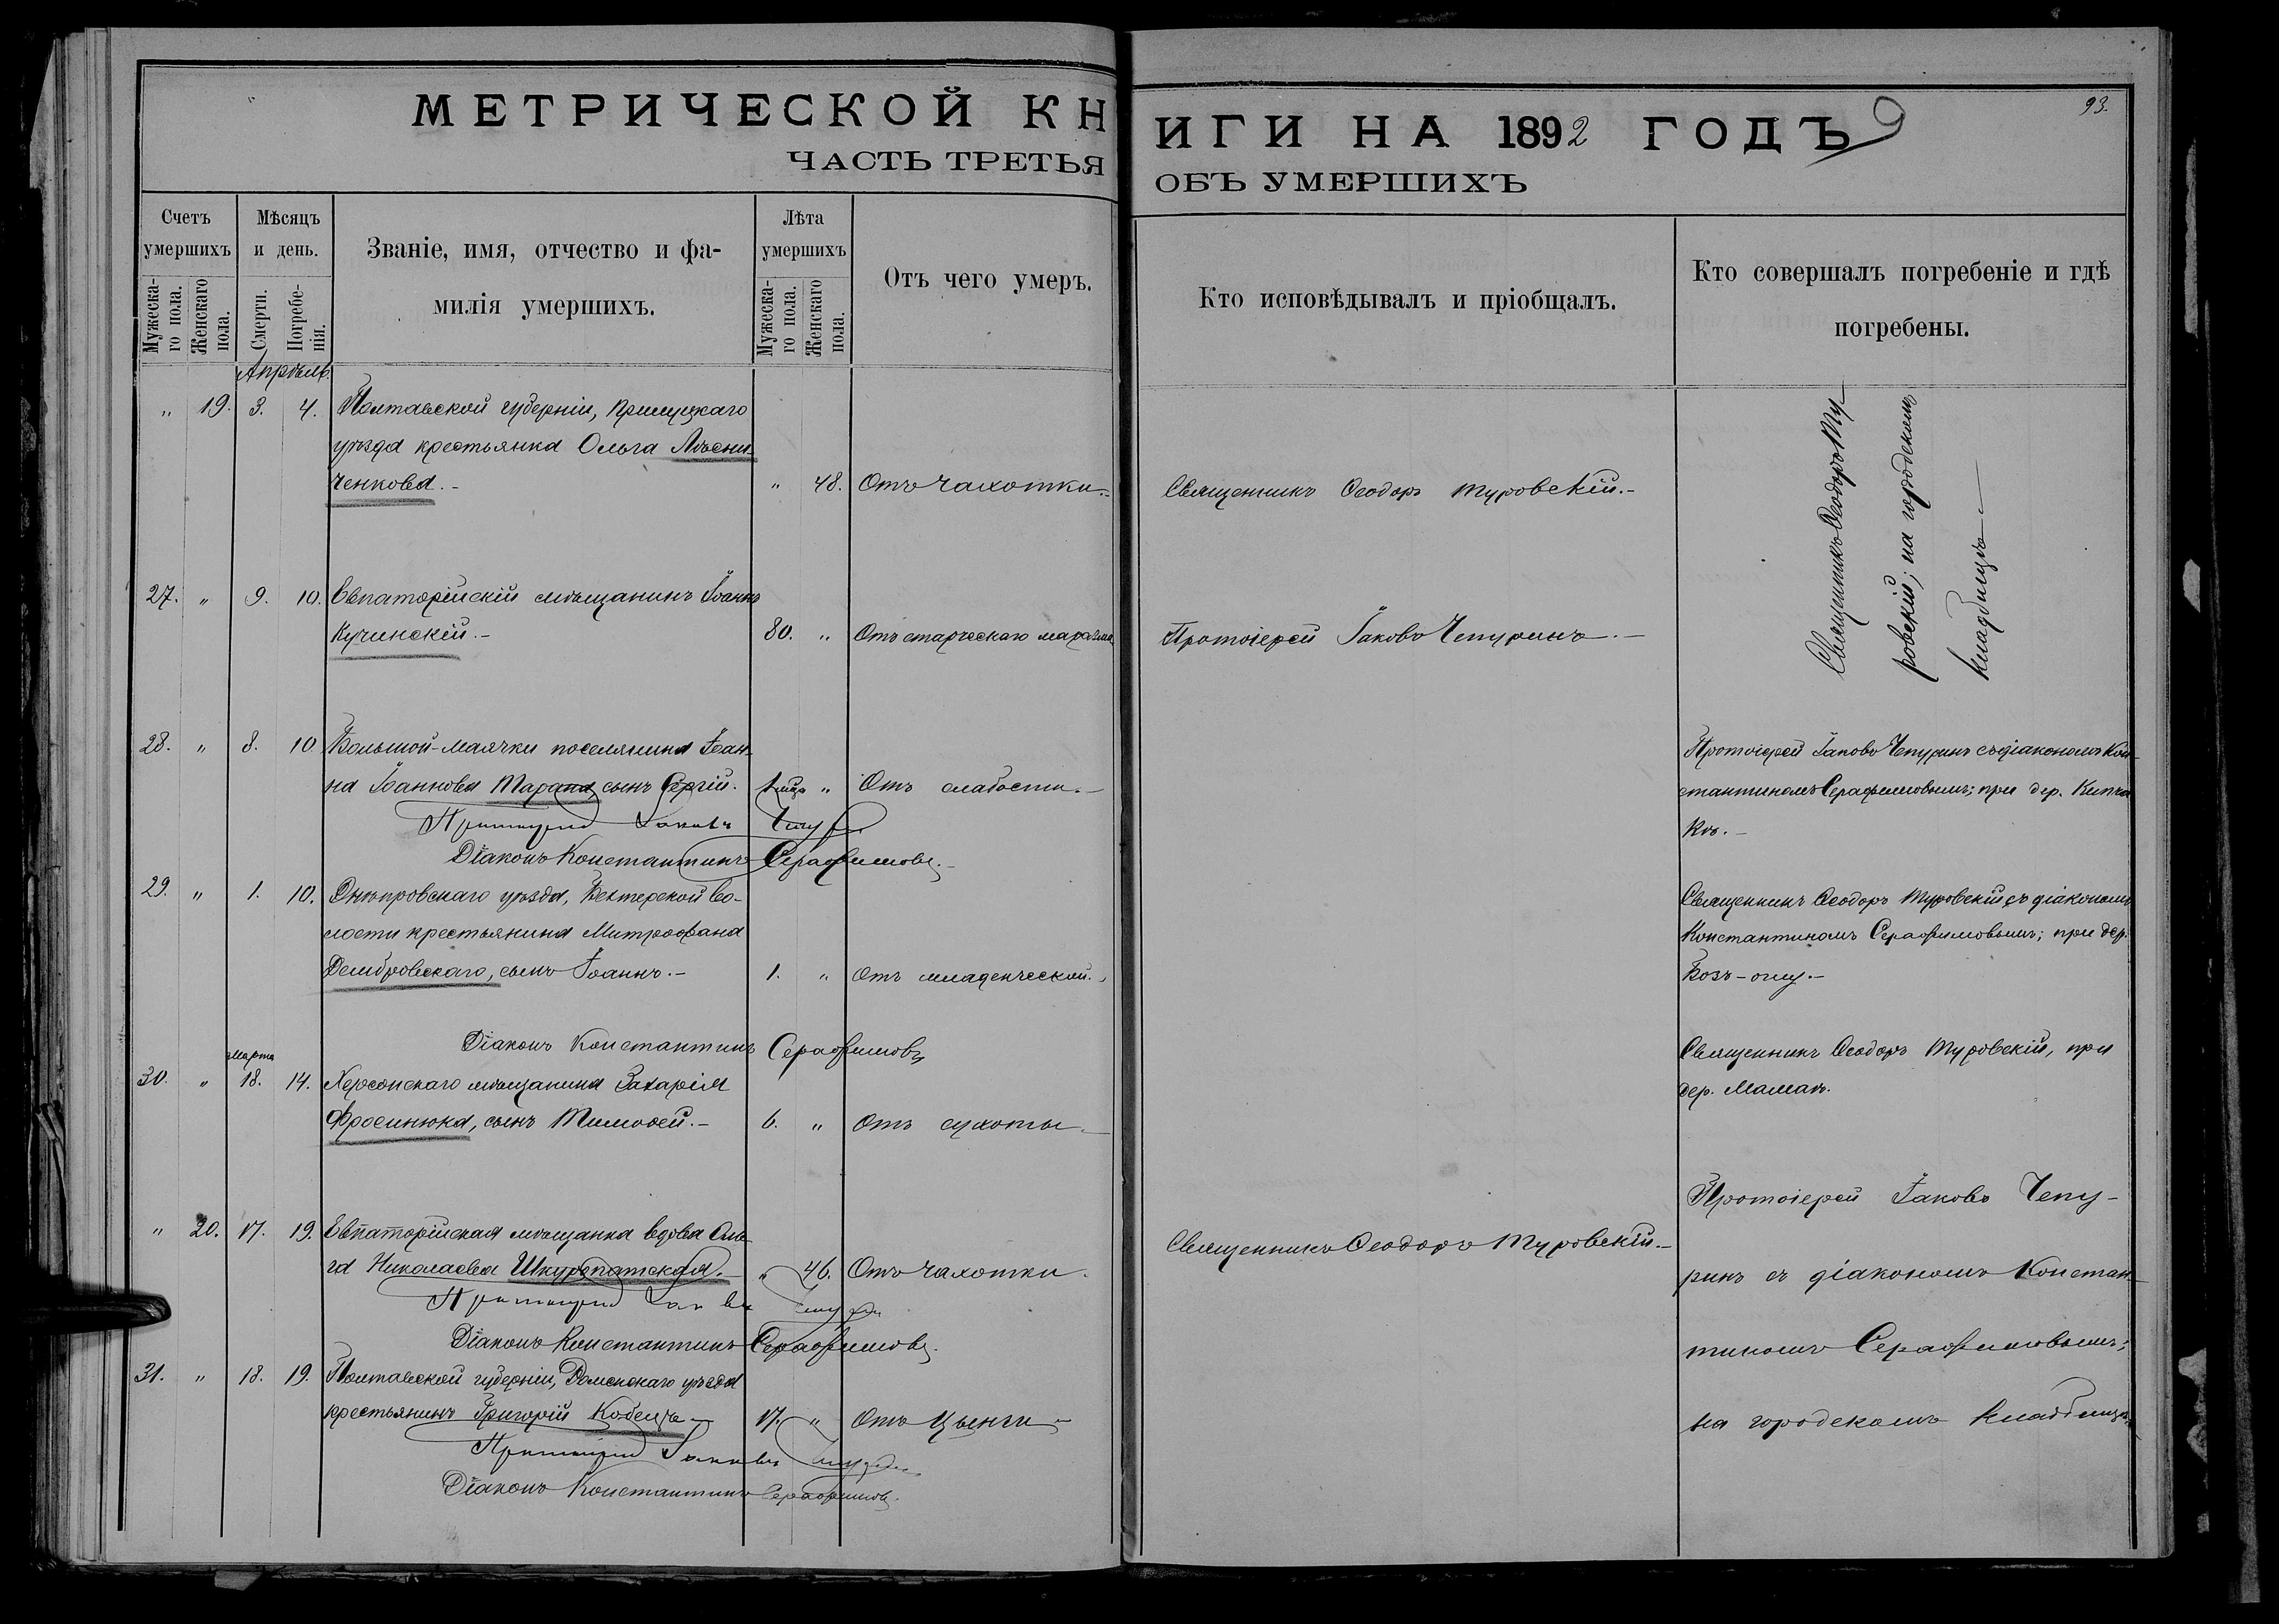 МЕТРИЧЕСКОЙ КНИГИ НА 1892 ГОДЪ
93.
ЧАСТЬ ТРЕТЬЯ ОБЪ УМЕРШИХЪ
Счетъ умершихъ
Мужеска-го пола.
Женскаго пола.
Мѣсяцъ и день.
Смерти.
Погребе-нія.
Званіе, имя, отчество и фа-
милія умершихъ.
Лѣта умершихъ
Мужеска-го пола.
Женскаго пола.
Отъ чего умеръ.
Кто исповѣдывалъ и пріобщалъ.
Кто совершалъ погребеніе и гдѣ
погребены.
Апрѣль.
" 19. 3. 4. Полтавской губерніи, Прилуцкаго
уѣзда крестьянка Ольга Лѣсни-
ченкова.- " 48. Отъ чахотки.- Священникъ Ѳеодоръ Туровскій.-
Священникъ Ѳеодоръ Ту-
ровскій; на городскомъ
кладбищѣ.-
27. " 9. 10. Евпаторійскій мѣщанинъ Іоаннъ
Кучинскій.- 80. " Отъ старческаго маразма Протоіерей Іаковъ Чепуринъ.-
28. " 8. 10 Большой-Маячки поселянина Іоан-
на Іоаннова Тарана сынъ Сергій. 1 мѣс. " Отъ слабости.-
Протоіерей Іаковъ Чепуринъ съ діакономъ Кон-
стантиномъ Серафимовымъ; при дер. Кипча
къ.-
Протоіерей Іаковъ Чепуринъ
Діаконъ Константинъ Серафимовъ.-
29. " 1. 10. Днѣпровскаго уѣзда, Бехтерской во-
лости крестьянина Митрофана
Дембровскаго, сынъ Іоаннъ.- 1. " Отъ младенческой.
Священникъ Ѳеодоръ Туровскій съ діакономъ
Константиномъ Серафимовымъ; при дер.
Бозъ-оглу.-
Діаконъ Константинъ Серафимовъ
марта
30. " 18. 14. Херсонскаго мѣщанина Захарія
Фросинюка, сынъ Тимоѳей.- 6. " Отъ сухоты.-
Священникъ Ѳеодоръ Туровскій, при
дер. Мамай.
" 20. 17. 19. Евпаторійская мѣщанка вдова Оль-
га Николаева Шкуропатская.- " 46. Отъ чахотки. Священникъ Ѳеодоръ Туровскій.-
Протоіерей Іаковъ Чепуринъ
Діаконъ Константинъ Серафимовъ.
Протоіерей Іаковъ Чепу-
ринъ съ діакономъ Констан-
тиномъ Серафимовымъ;
на городскомъ кладбищѣ.
31. " 18. 19. Полтавской губерніи, Роменскаго уѣзда
крестьянинъ Григорій Кобецъ.- 17. " Отъ цынги.-
Протоіерей Іаковъ Чепуринъ
Діаконъ Константинъ Серафимовъ.